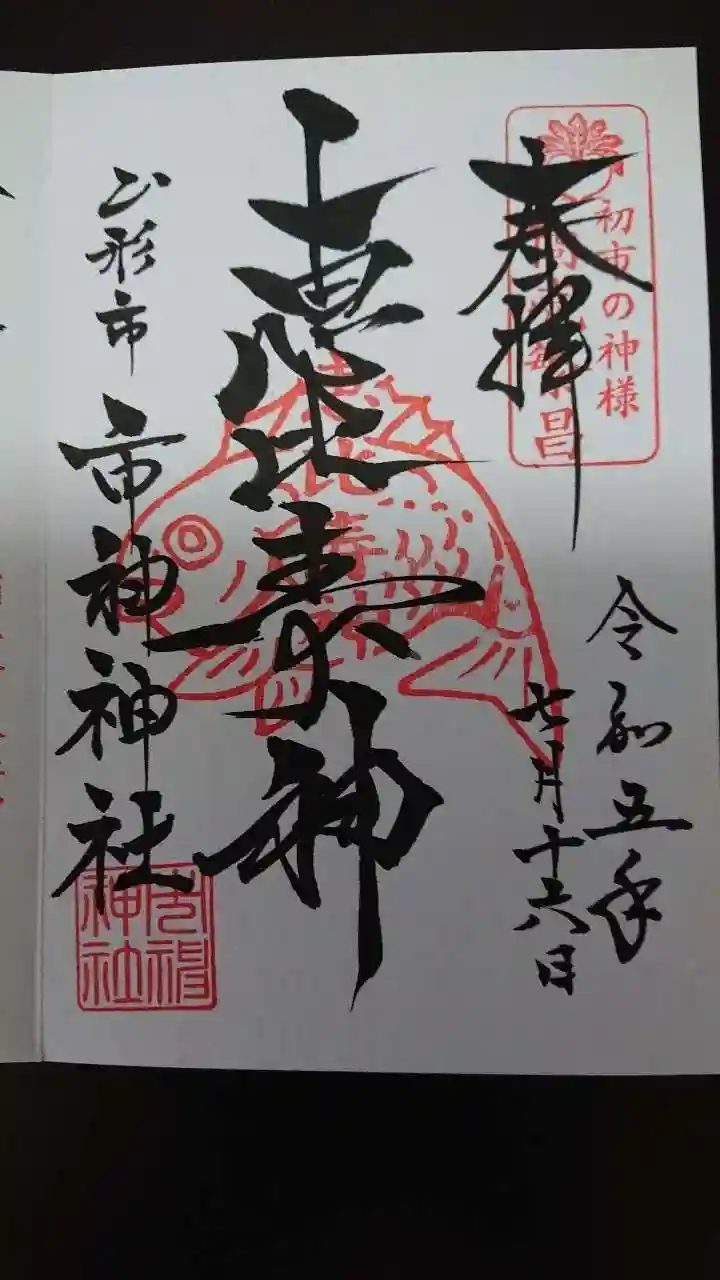 初市の神様
商売繁昌
奉拝
令和五年
七月十六日
恵比寿神
山形市
市神神社
神社